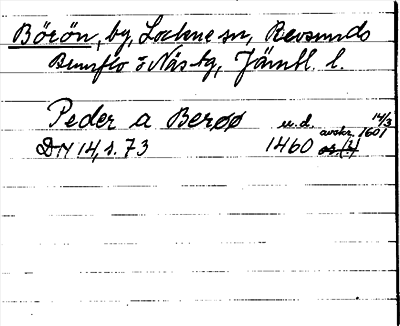 Börön, by, Lockne sn, Revsunds
Brunflo o Näs tg, Jämtl. l.
Peder a Berøø u.d. 14/3
avskr. 1601
DN 14, s. 73 1460 or. (?)